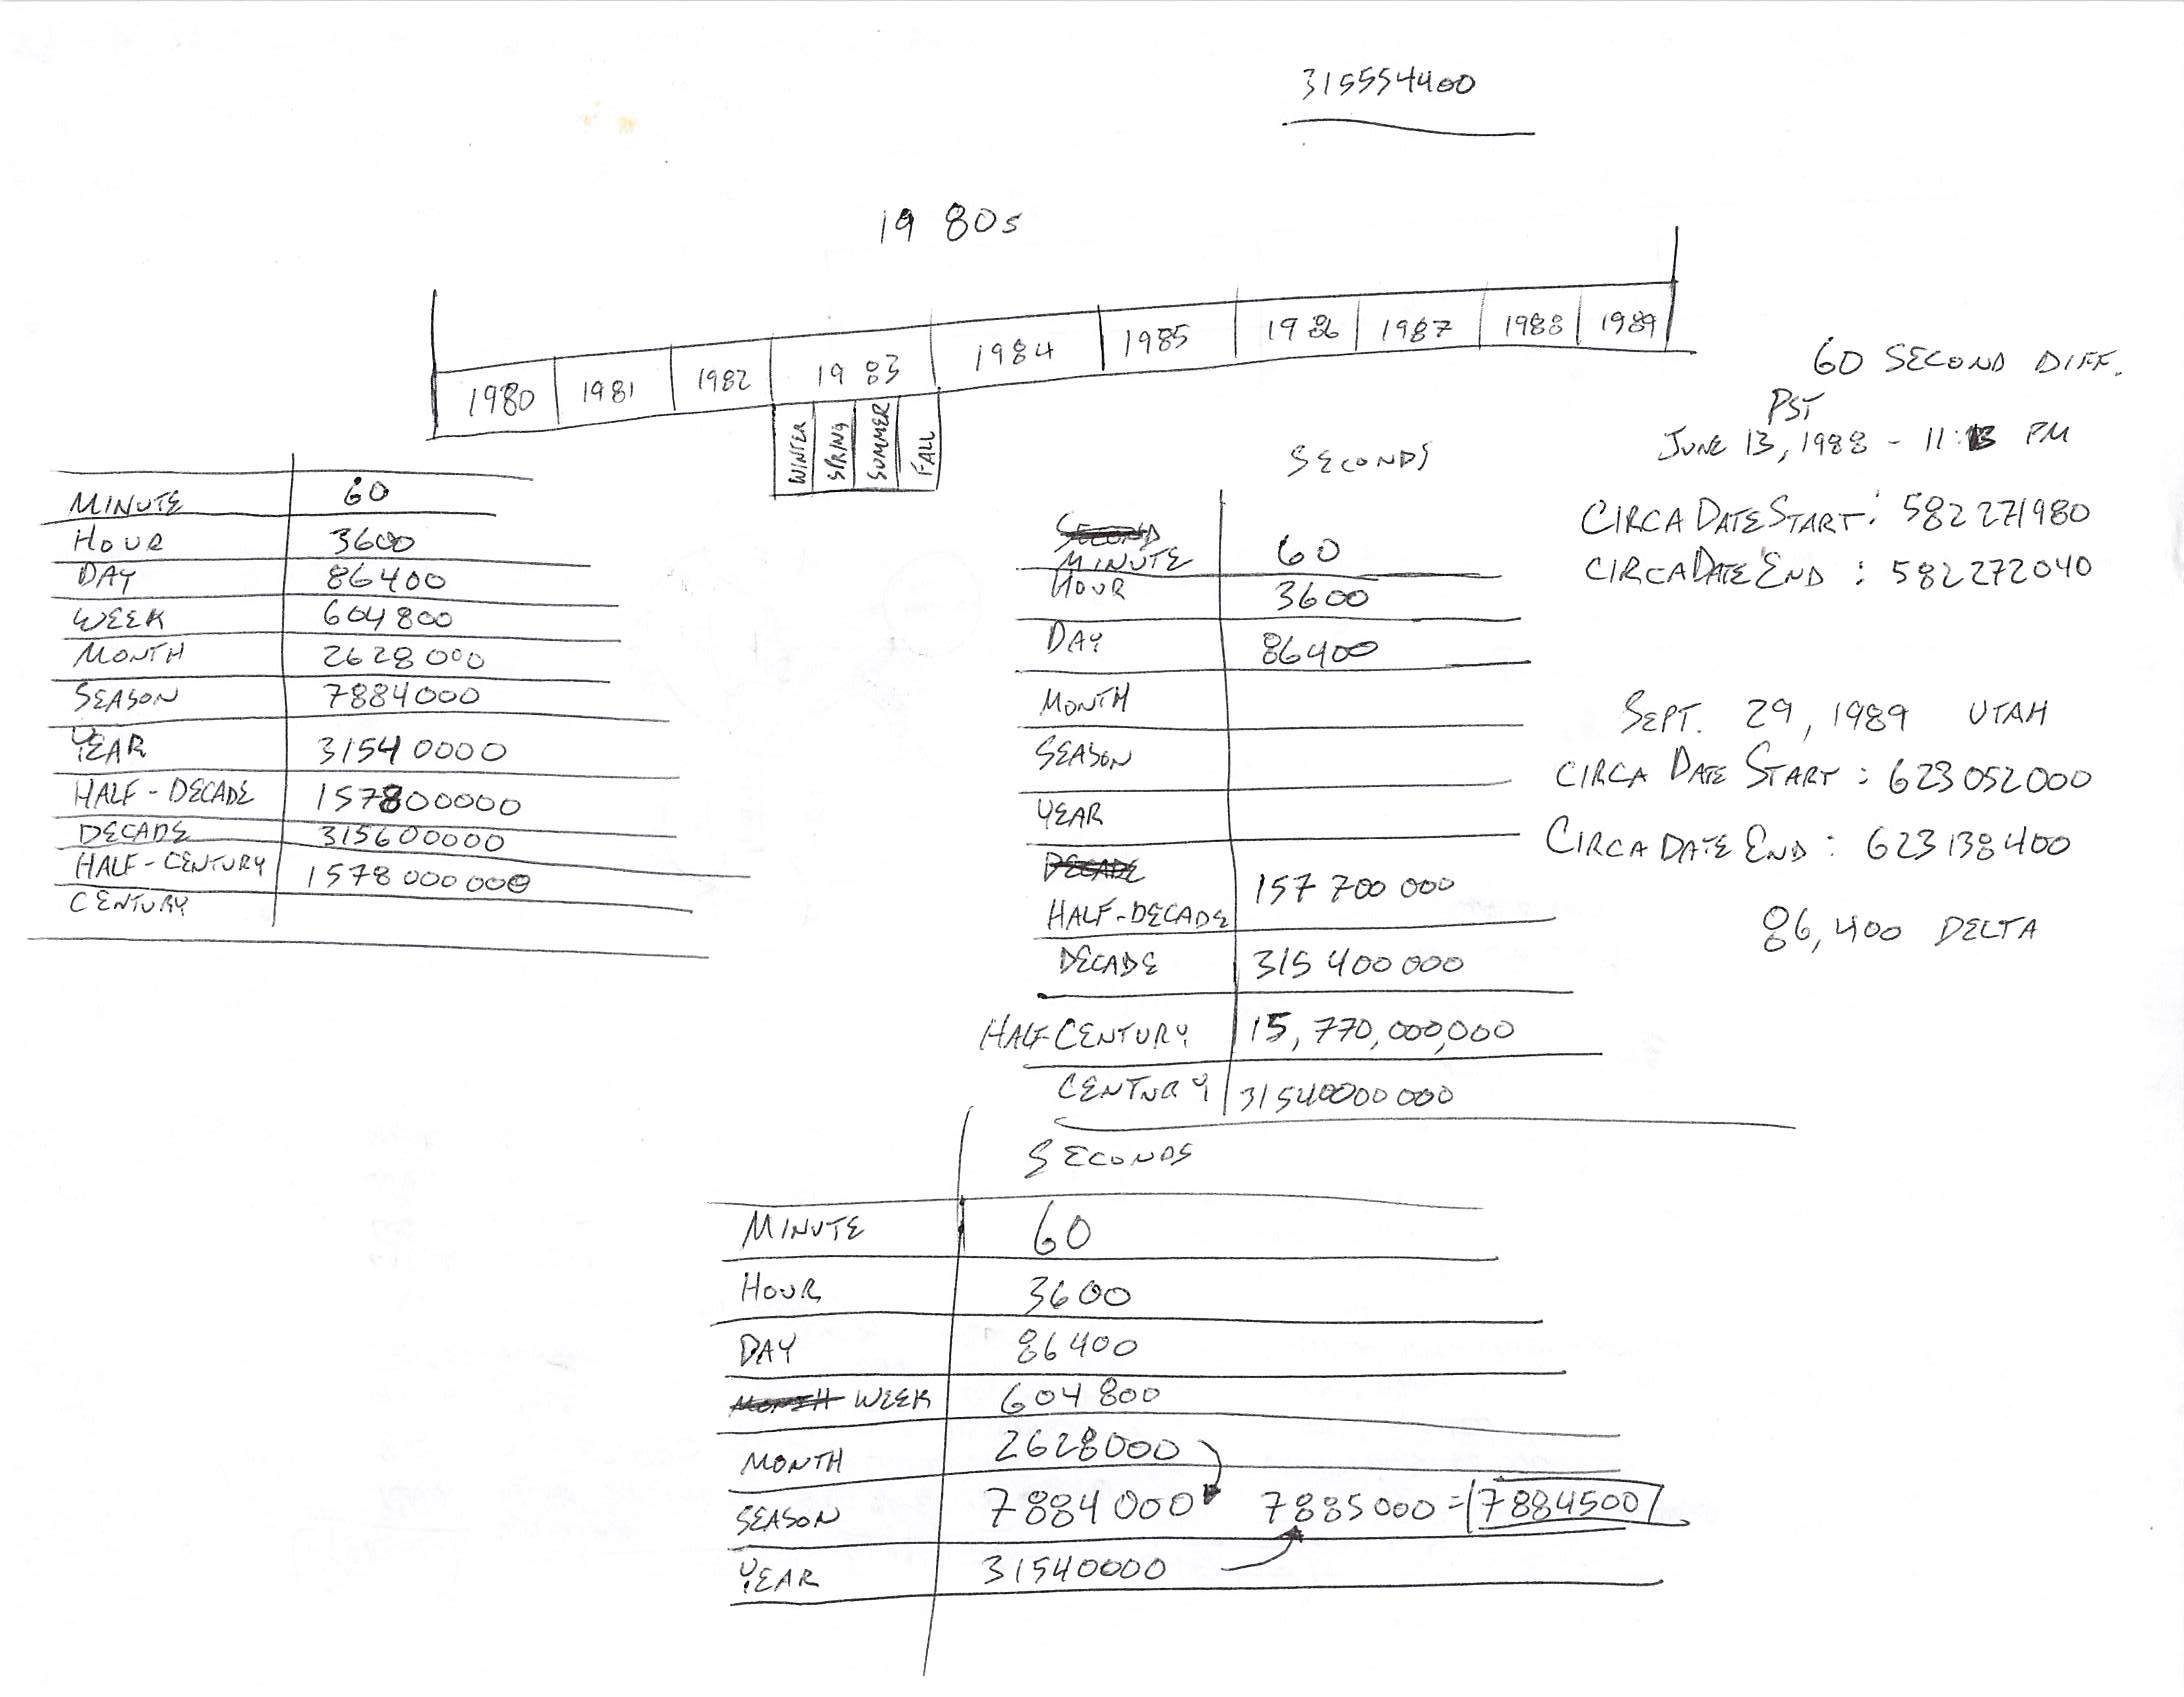 315554400
1980s
1980 1981 1982 1983 1984 1985 1986 1987 1988 1989
WINTER SPRING SUMMER FALL
MINUTE 60
HOUR 3600
DAY 86400
WEEK 604800
MONTH 2628000
SEASON 7884000
YEAR 31540000
HALF-DECADE 157800000
DECADE 315600000
HALF-CENTURY 1578000000
CENTURY
SECONDS
MINUTE 60
HOUR 3600
DAY 86400
MONTH
SEASON
YEAR
DECADE
HALF-DECADE 157 700 000
DECADE 315 400 000
HALF-CENTURY 15,770,000,000
CENTURY 31540000000
60 SECOND DIFF.
PST
JUNE 13, 1988 - 11:13 PM
CIRCA DATE START: 582271980
CIRCA DATE END: 582272040
SEPT. 29, 1989 UTAH
CIRCA DATE START: 623052000
CIRCA DATE END: 623138400
86,400 DELTA
SECONDS
MINUTE 60
HOUR 3600
DAY 86400
MONTH WEEK 604800
MONTH 2628000
SEASON 7884000 7885000 = 7884500
YEAR 31540000